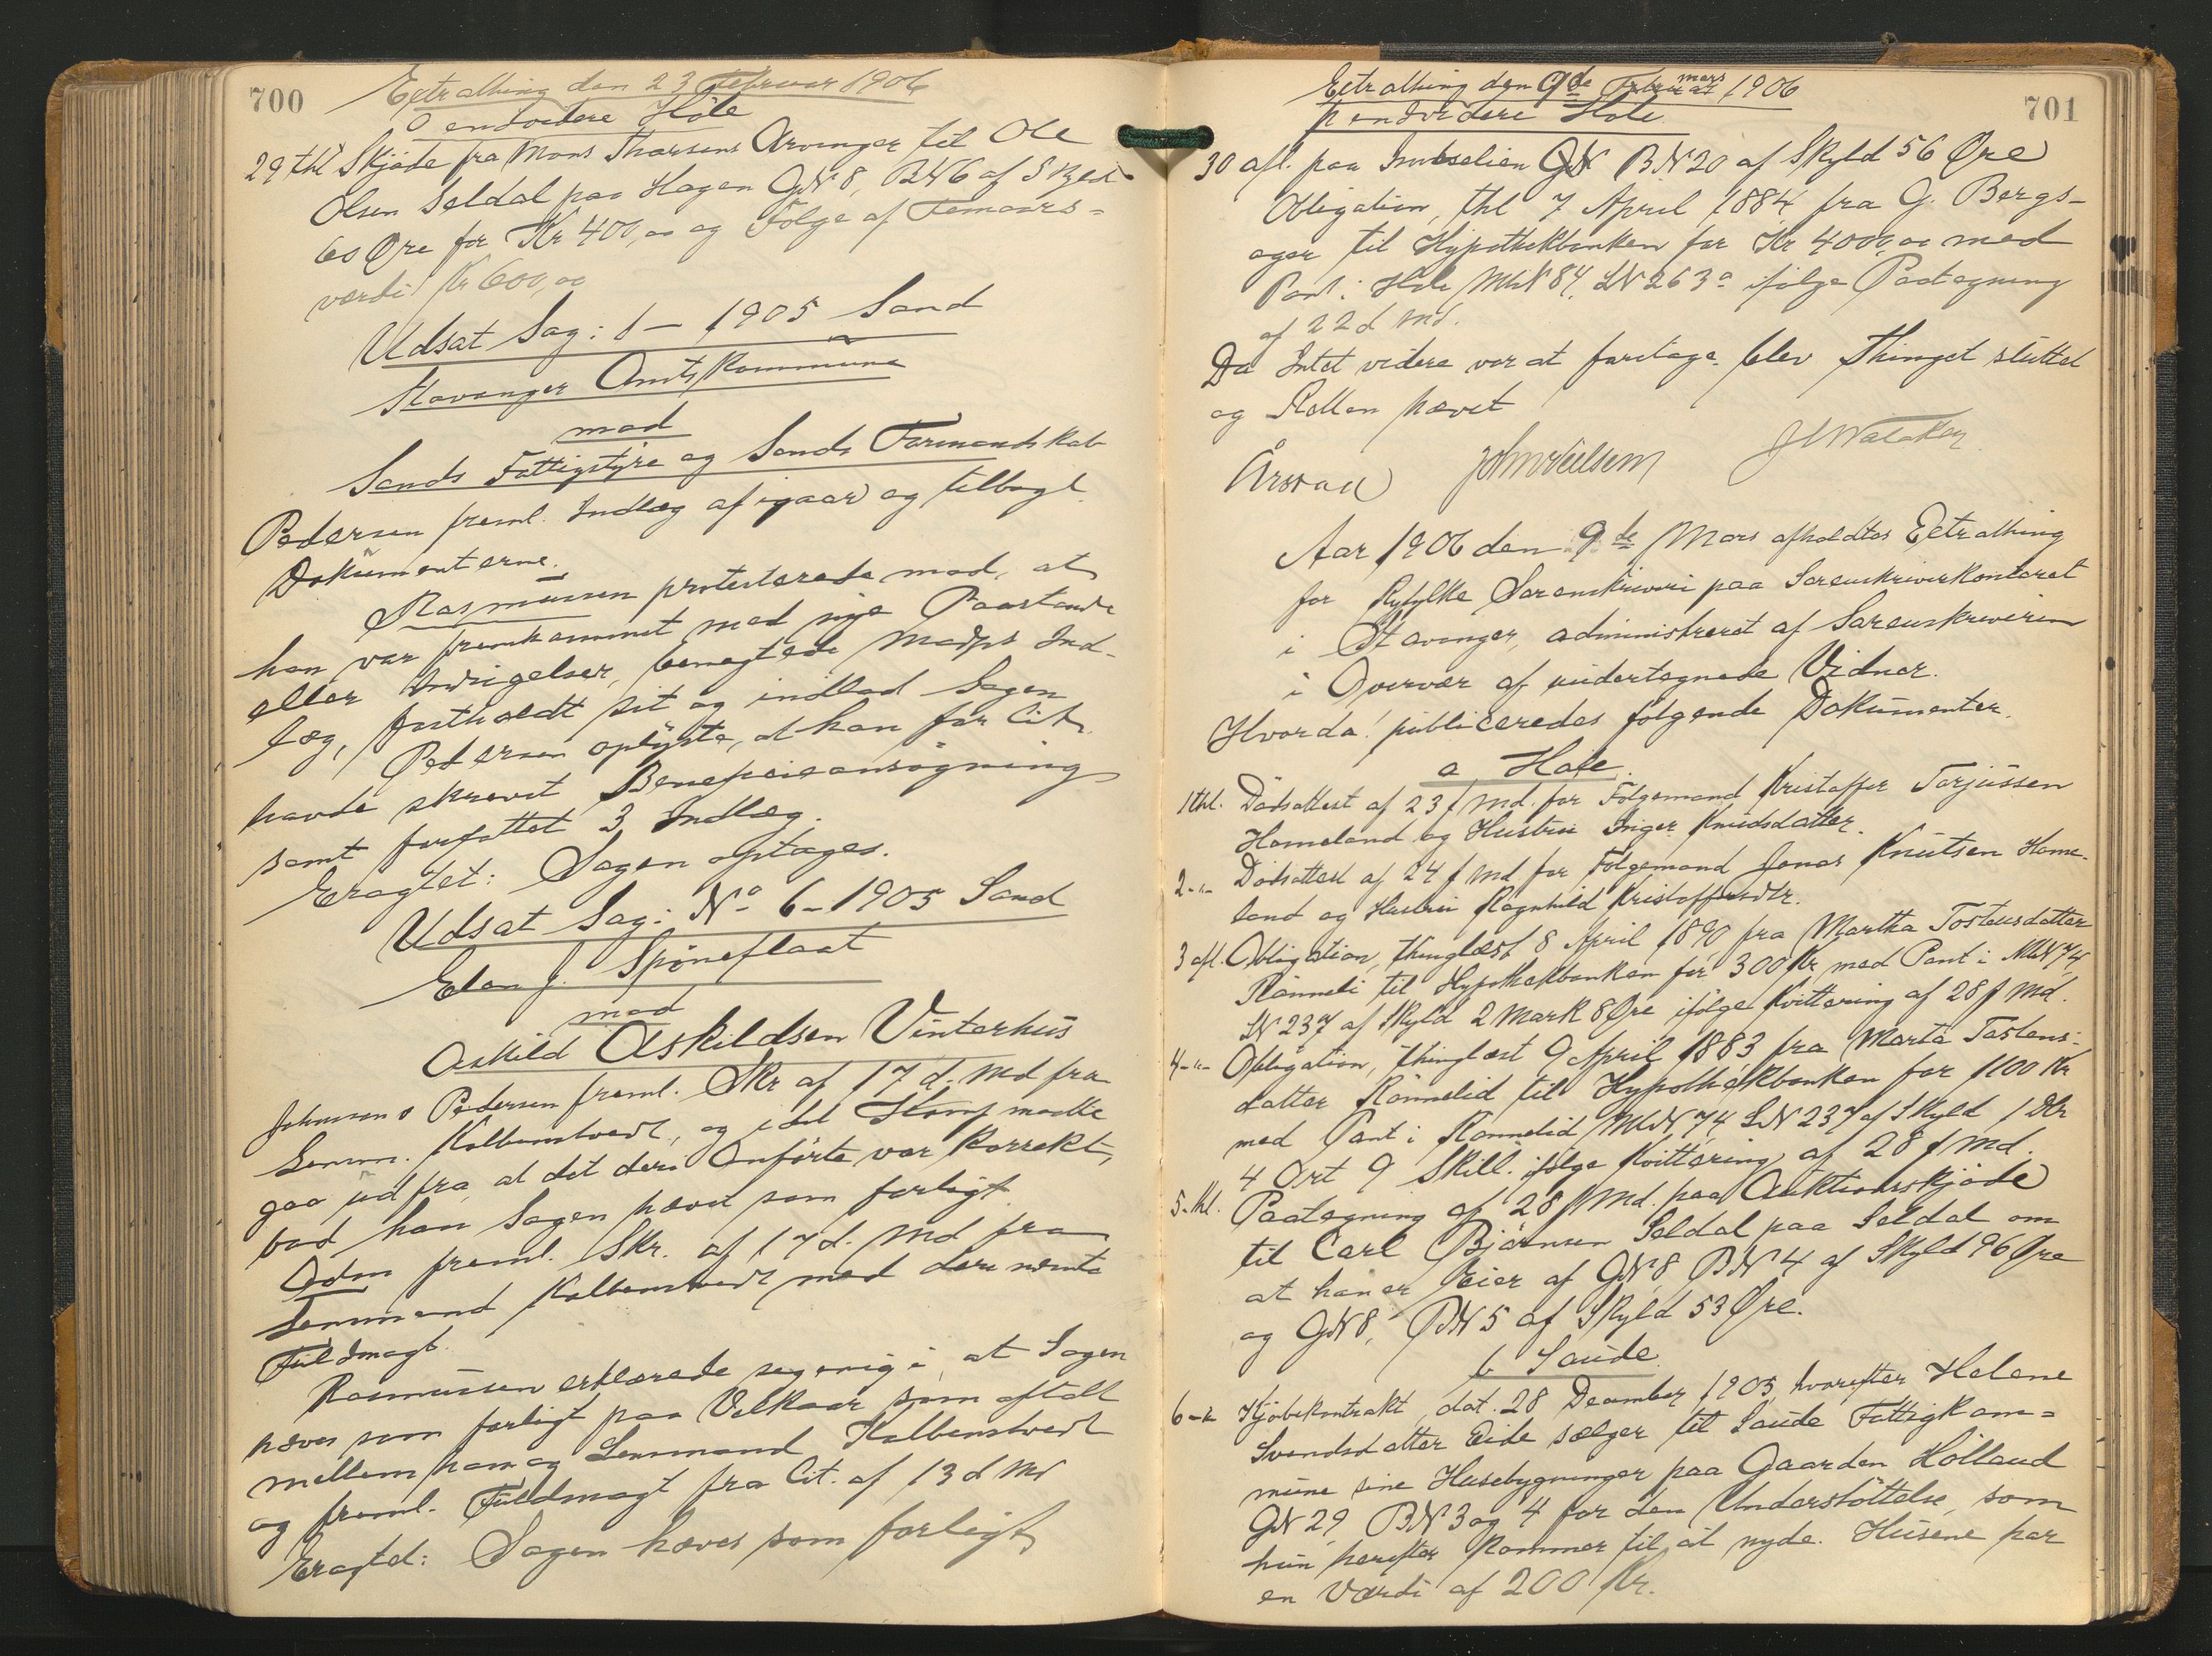 700
Extrathing den 23 Februar 1906
O endvidere Höle
29 thl Skjöde fra Mons Thorsens Arvinger til Ole
Olsen Seldal paa Hagen GN 8, BN 6 af Skyld
60 Øre for Kr 400,00 og Følge af Femaars-
værdi Kr 600,00
Udsat Sag: 1 – 1905 Sand
Stavanger Amtskommune
mod
Sands Fattigstyre og Sands Formandskab
Pedersen freml. Indlæg af igaar og tilbagl.
Dokumenterne.
Rasmussen protesterede mod, at
han var fremkommet med nye Paastande
eller Indsigelser, benegtede Modps Ind-
læg, fastholdt sit og indlod Sagen
Pedersen oplyste, at han for Cit.
havde skrevet Beneficieansøgning
samt forfattet 3 Indlæg.
Eragtet: Sagen optages.
Udsat Sag: No 6 – 1905 Sand
Elen J. Spöneflaat
mod
Askild Askildsen Vinterhus
Johnsen o Pedersen freml. Skr af 17 d. Md fra
Lensm. Kolbenstvedt, og idet Homp maatte
gaa ud fra at det deri Anførte var korrekt,
bad han Sagen hævet som forligt.
Adm freml. Skr. af 17 d. Md fra
Lensmand Kolbenstvedt med deri nævnte
Fuldmagt.
Rasmussen erklærede sig enig i, at Sagen
hæves som forligt paa Vilkaar som aftalt
mellem ham og Lensmand Kolbenstvedt
og freml. Fuldmagt fra Cit. af 13 d Md
Eragtet: Sagen hæves som forligt
701
Extrathing den 9de Februar mars 1906
p endvidere Höle
30 afl. paa GN BN 20 af Skyld 56 Øre
Obligation, thl 7 April 1884 fra G. Bergs-
ager til Hypothekbanken for Kr 4000,00 med
Pant i Høle MN 84, LN 263a ifølge Paategning
af 22 d Md.
Da Intet videre var at foretage blev Thinget sluttet
og Retten hævet
Årsvall
Aar 1906 den 9de Mars afholdtes Extrathing
for Ryfylke Sorenskriveri paa Sorenskriverkontoret
i Stavanger, administreret af Sorenskriveren
i Overvær af undertegnede Vidner.
Hvorda! publiceredes følgende Dokumenter.
a Høle
1 thl. Dødsattest af 23 f Md. for Følgemand Kristoffer Torjussen
Hommeland og Hustru Inger Knudsdatter.
2 -"- Dødsattest af 24 f Md for Følgemand Jonas Knutsen Home-
land og Hustru Ragnhild Kristoffersdtr.
3 afl. Obligation, thinglæst 8 April 1890 fra Martha Tostensdatter
Rønneli til Hypothekbanken for 300 Kr med Pant i MN 74
LN 237 af Skyld 2 Mark 8 Øre ifølge Kvittering af 28 f Md.
4 -"- Obligation, thinglæst 9 April 1883 fra Marta Tostens-
datter Rønnelid til Hypothekbanken for 1100 Kr
med Pant i Rønnelid MN 74 LN 237 af Skyld 1 Dlr
4 Ort 9 Skill. ifølge Kvittering af 28 f Md.
5 thl. Paategning af 28 f Md. paa Auktionsskjøde
til Carl Bjørnsen Seldal paa Seldal om
at han er Eier af GN 8 BN 4 af Skyld 96 Øre
og GN 8, BN 5 af Skyld 53 Øre.
b Saude
6 -"- Kjøbekontrakt, dat. 28 December 1905, hvorefter Helene
Svendsdatter Eide sælger til Saude Fattigkom-
mune sine Husebygninger paa Gaarden Hølland
GN 29 BN 3 og 4 for den Understøttelse, som
hun herefter kommer til at nyde. Husene har
en Værdi af 200 Kr.